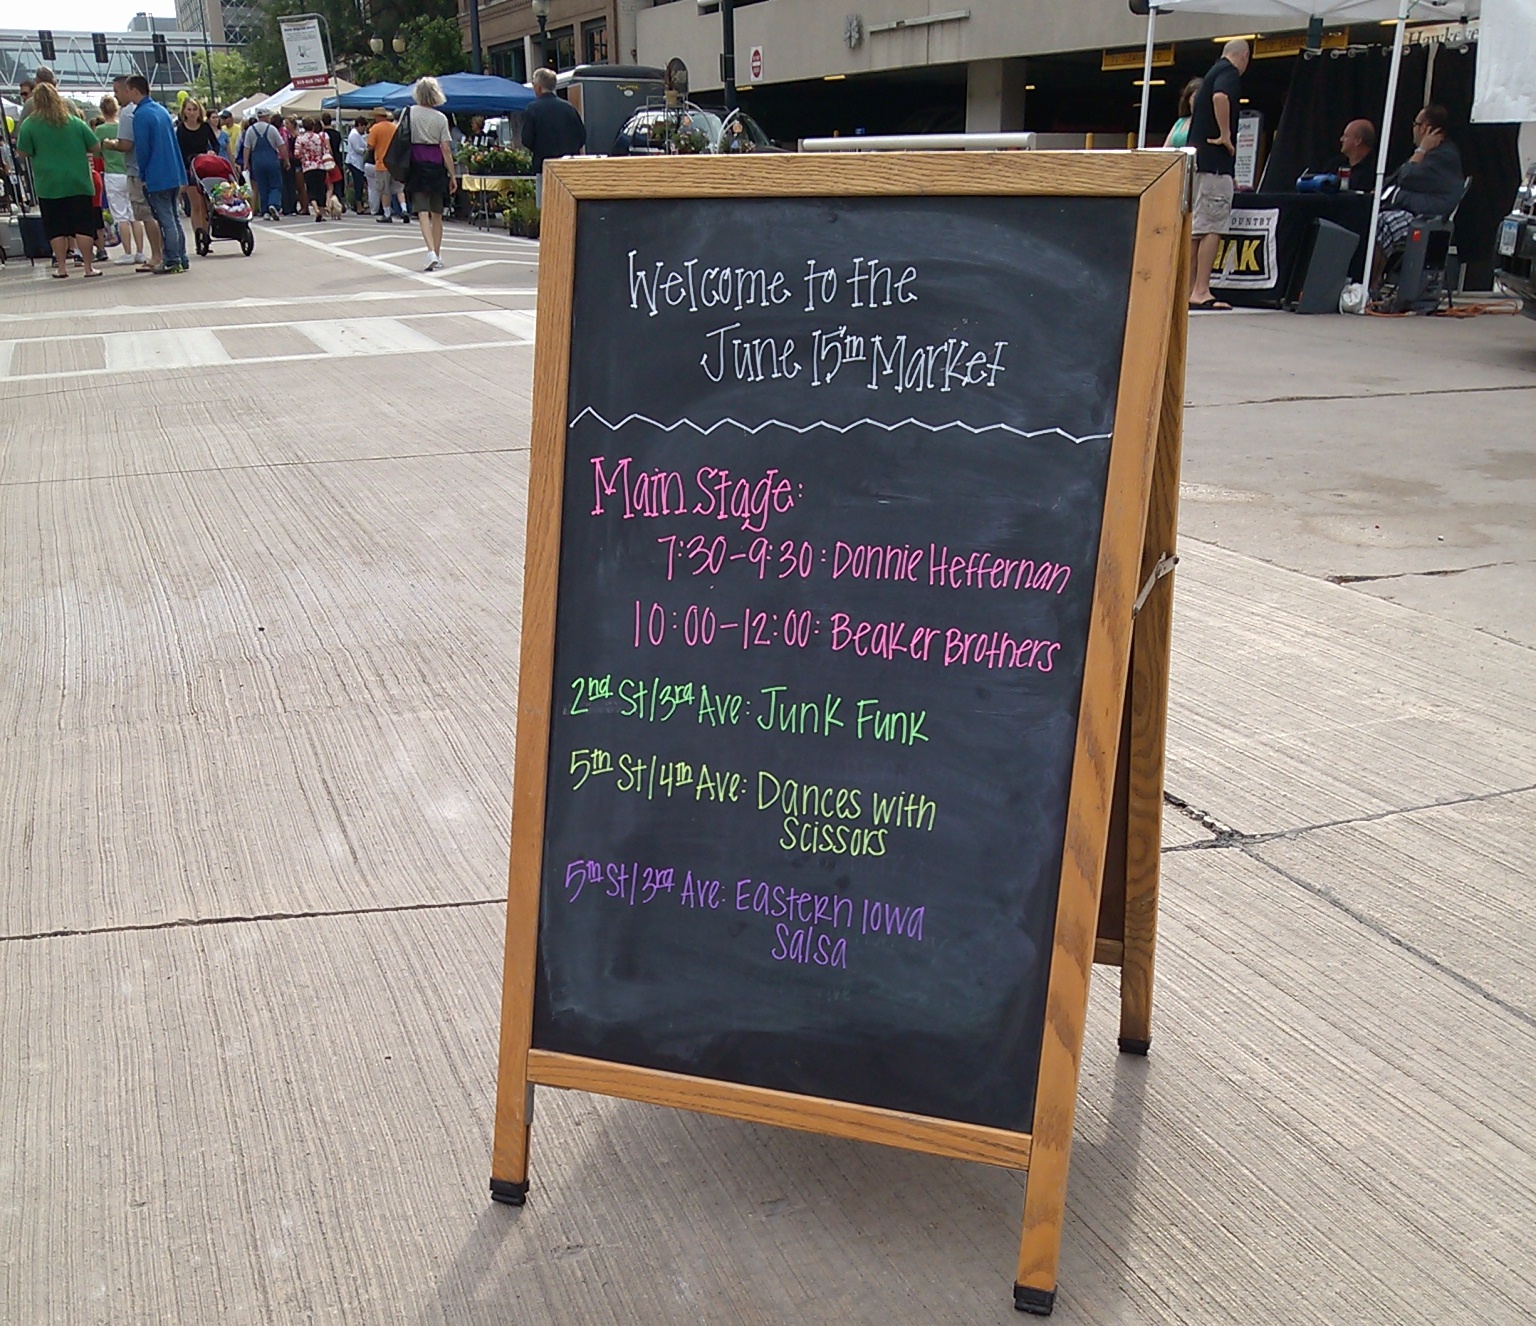 Welcome to the
June 15th Market
Main Stage:
7:30-9:30: Donnie Heffernan
10:00-12:00: Beaker Brothers
2nd St/3rd Ave: Junk Funk
5th St/4th Ave: Dances with
Scissors
5th St/3rd Ave: Eastern Iowa
Salsa
OUNTRY
HAK